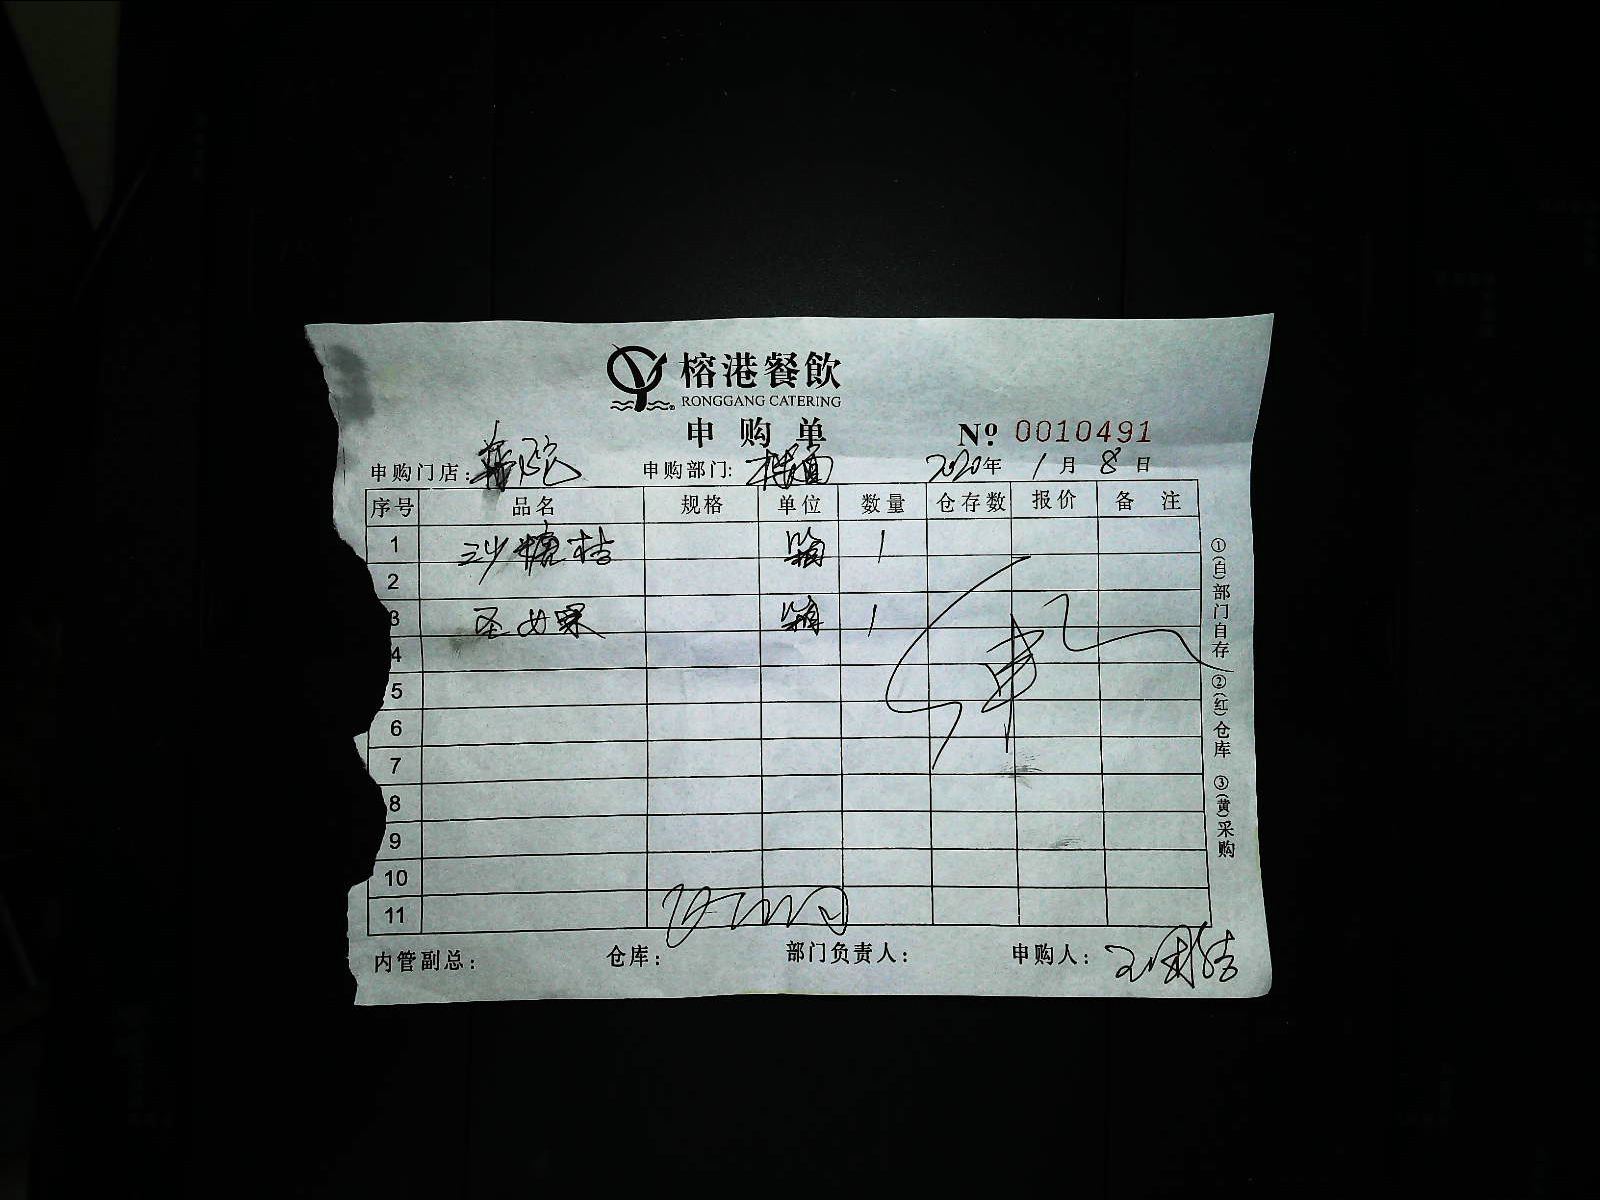 榕港餐飲
RONGGANG CATERING
申购单 No. 0010491
申购门店: 申购部门: 楼面 2020年 1月 8日
序号 品名 规格 单位 数量 仓存数 报价 备注
1 沙糖桔 箱 1
2
3 圣女果 箱 1
4
5
6
7
8
9
10
11
内管副总: 仓库: 部门负责人: 申购人:
①(白)部门自存 ②(红)仓库 ③(黄)采购